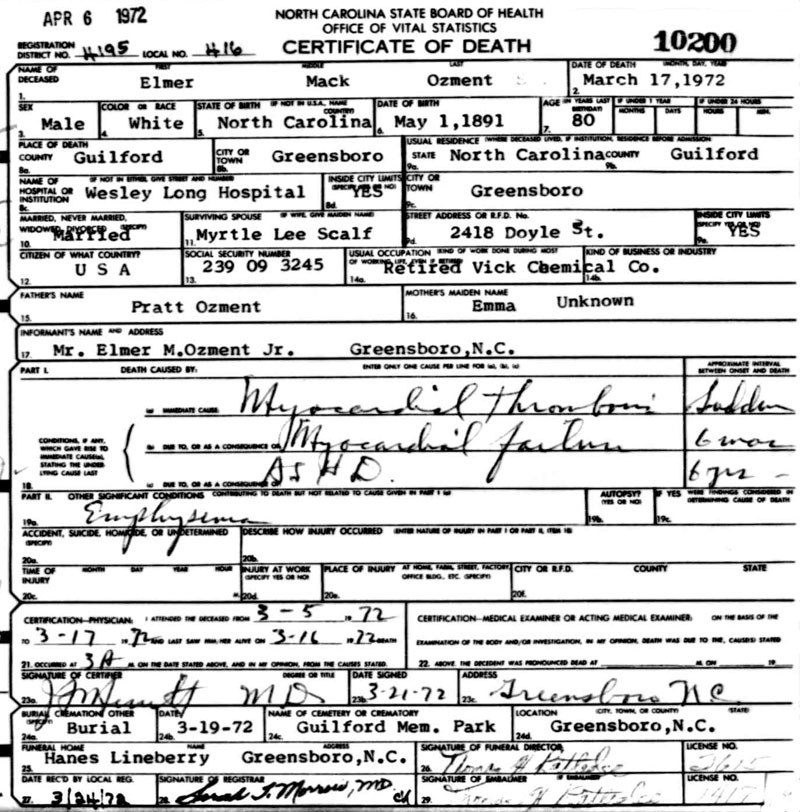 APR 6 1972
NORTH CAROLINA STATE BOARD OF HEALTH
OFFICE OF VITAL STATISTICS
REGISTRATION DISTRICT NO. 4195 LOCAL NO. 416 CERTIFICATE OF DEATH 10200
NAME OF DECEASED FIRST MIDDLE LAST DATE OF DEATH (MONTH, DAY, YEAR)
1. Elmer Mack Ozment 2. March 17,1972
SEX COLOR OR RACE STATE OF BIRTH (IF NOT IN U.S.A., NAME COUNTRY) DATE OF BIRTH AGE (IN YEARS LAST BIRTHDAY) IF UNDER 1 YEAR IF UNDER 24 HOURS
MONTHS DAYS HOURS MIN.
3. Male 4. White 5. North Carolina 6. May 1,1891 7. 80
PLACE OF DEATH USUAL RESIDENCE (WHERE DECEASED LIVED, IF INSTITUTION, RESIDENCE BEFORE ADMISSION)
COUNTY Guilford CITY OR TOWN Greensboro STATE North Carolina COUNTY Guilford
8a. 8b. 9a. 9b.
NAME OF HOSPITAL OR INSTITUTION (IF NOT IN EITHER, GIVE STREET AND NUMBER) INSIDE CITY LIMITS (SPECIFY YES OR NO) CITY OR TOWN
8c. Wesley Long Hospital 8d. YES 9c. Greensboro
MARRIED, NEVER MARRIED, WIDOWED, DIVORCED (SPECIFY) SURVIVING SPOUSE (IF WIFE, GIVE MAIDEN NAME) STREET ADDRESS OR R.F.D. No. INSIDE CITY LIMITS (SPECIFY YES OR NO)
10. Married 11. Myrtle Lee Scalf 9d. 2418 Doyle St. 9e. YES
CITIZEN OF WHAT COUNTRY? SOCIAL SECURITY NUMBER USUAL OCCUPATION (KIND OF WORK DONE DURING MOST OF WORKING LIFE, EVEN IF RETIRED) KIND OF BUSINESS OR INDUSTRY
12. U S A 13. 239 09 3245 14a. Retired Vick Chemical Co. 14b.
FATHER'S NAME MOTHER'S MAIDEN NAME
15. Pratt Ozment 16. Emma Unknown
INFORMANT'S NAME AND ADDRESS
17. Mr. Elmer M.Ozment Jr. Greensboro,N.C.
PART I. DEATH CAUSED BY: ENTER ONLY ONE CAUSE PER LINE FOR (a), (b), (c) APPROXIMATE INTERVAL BETWEEN ONSET AND DEATH
(a) IMMEDIATE CAUSE Myocardial thrombosis Sudden
CONDITIONS, IF ANY, WHICH GAVE RISE TO IMMEDIATE CAUSE(a), STATING THE UNDERLYING CAUSE LAST
(b) DUE TO, OR AS A CONSEQUENCE OF Myocardial failure 6 mos
18. (c) DUE TO, OR AS A CONSEQUENCE OF ASHD. 6 yrs -
PART II. OTHER SIGNIFICANT CONDITIONS CONTRIBUTING TO DEATH BUT NOT RELATED TO CAUSE GIVEN IN PART I (a) AUTOPSY? (YES OR NO) IF YES WERE FINDINGS CONSIDERED IN DETERMINING CAUSE OF DEATH
19a. Emphysema 19b. 19c.
ACCIDENT, SUICIDE, HOMICIDE, OR UNDETERMINED (SPECIFY) DESCRIBE HOW INJURY OCCURRED (ENTER NATURE OF INJURY IN PART I OR PART II, ITEM 18)
20a. 20b.
TIME OF INJURY MONTH DAY YEAR HOUR INJURY AT WORK (SPECIFY YES OR NO) PLACE OF INJURY AT HOME, FARM, STREET, FACTORY, OFFICE BLDG., ETC. (SPECIFY) CITY OR R.F.D. COUNTY STATE
20c. M. 20d. 20e. 20f.
CERTIFICATION—PHYSICIAN: I ATTENDED THE DECEASED FROM 3-5 1972 CERTIFICATION—MEDICAL EXAMINER OR ACTING MEDICAL EXAMINER: ON THE BASIS OF THE
TO 3-17 1972 AND LAST SAW HIM/HER ALIVE ON 3-16 1972 DEATH EXAMINATION OF THE BODY AND/OR INVESTIGATION, IN MY OPINION, DEATH WAS DUE TO THE, CAUSE(S) STATED
21. OCCURRED AT 3A M. ON THE DATE STATED ABOVE, AND IN MY OPINION, FROM THE CAUSES STATED. 22. ABOVE. THE DECEDENT WAS PRONOUNCED DEAD AT M. ON 19
SIGNATURE OF CERTIFIER DEGREE OR TITLE DATE SIGNED ADDRESS
23a. MD 23b. 3-21-72 23c. Greensboro N C
BURIAL CREMATION, OTHER (SPECIFY) DATE NAME OF CEMETERY OR CREMATORY LOCATION (CITY, TOWN, OR COUNTY) (STATE)
24a. Burial 24b. 3-19-72 24c. Guilford Mem. Park 24d. Greensboro,N.C.
FUNERAL HOME NAME ADDRESS SIGNATURE OF FUNERAL DIRECTOR LICENSE NO.
25. Hanes Lineberry Greensboro,N.C. 26. Thomas H
DATE REC'D BY LOCAL REG. SIGNATURE OF REGISTRAR SIGNATURE OF EMBALMER IF EMBALMED LICENSE NO.
27. 3/24/72 28. Sarah T. Morrow, MD 29. Thomas H